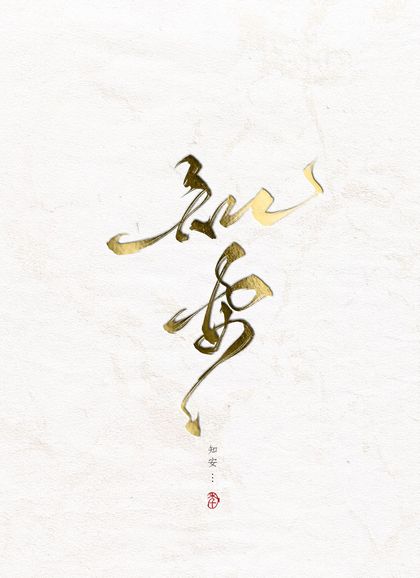 知安
知安…